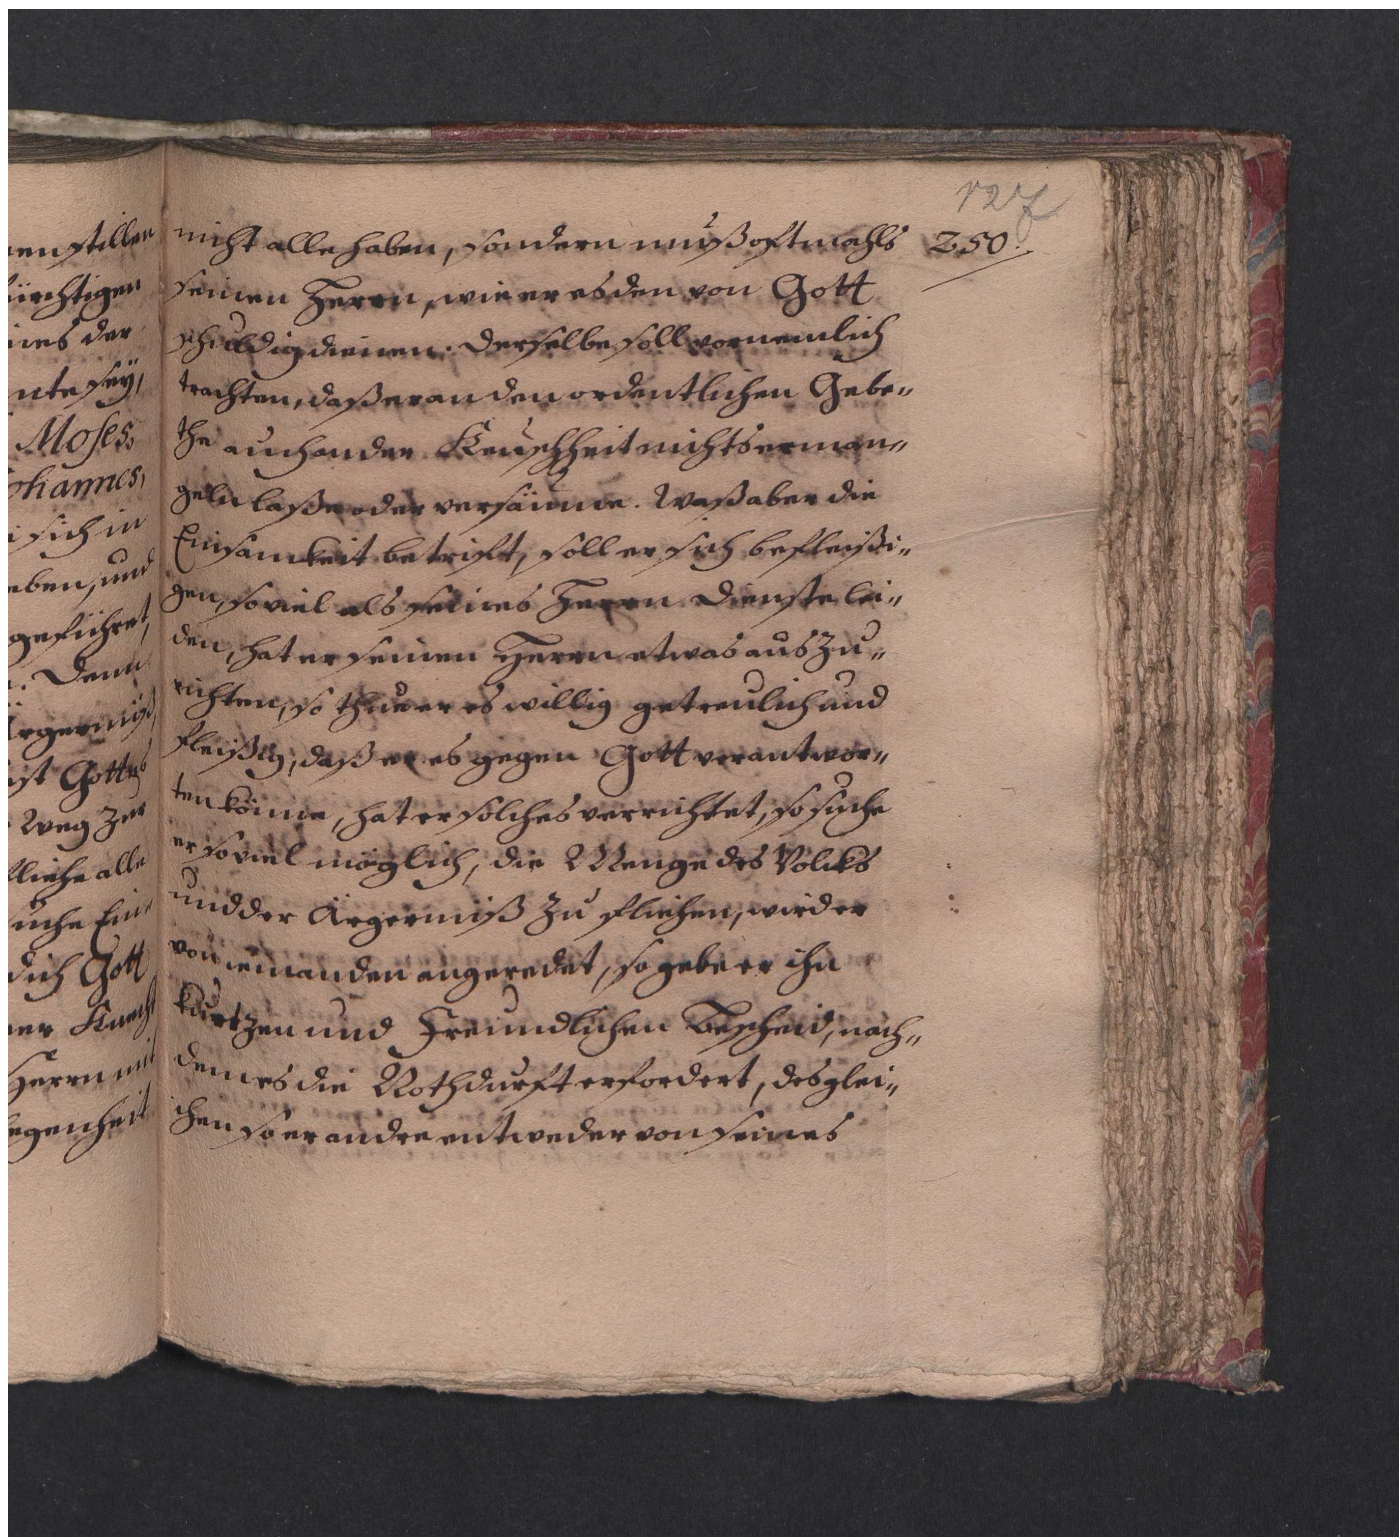 en stillen
fürchtigen
ines der
nte sey,
Moses,
ohannes,
sich in
eben, und
geführet,
Denn
Ärgerniß,
ist Gottes
Weg zur
fliehe alle
suche Ein„
dich Gott
ner Knecht
Herrn mit
legenheit
127
250.
nicht alle haben, sondern muß oftmahls
seinen Herrn, wie er es den von Gott
schuldig dienen. Derselbe soll vornemlich
trachten, daß er an den ordentlichen Gebe„
the auch an der Keuschheit nichts erman„
geln laße oder versäume. Waß aber die
Einsamkeit betrift, soll er sich befleißi„
gen, so viel als seines Herrn Dienste lei„
den, hat er seinen Herrn etwas aus Zu„
richten, so thue er es willig getreulich und
fleißig, daß er es gegen Gott verantwor„
ten könne, hat er solches verrichtet, so suche
er so viel möglich, die Menge des Volcks
und der Ärgerniß Zu fliehen, wird er
von iemanden angeredet, so gebe er ihn
kurtzen und Freundlichen Bescheid, nach„
dem es die Nothdurft erfordert, desglei„
chen so er andre entweder von seines